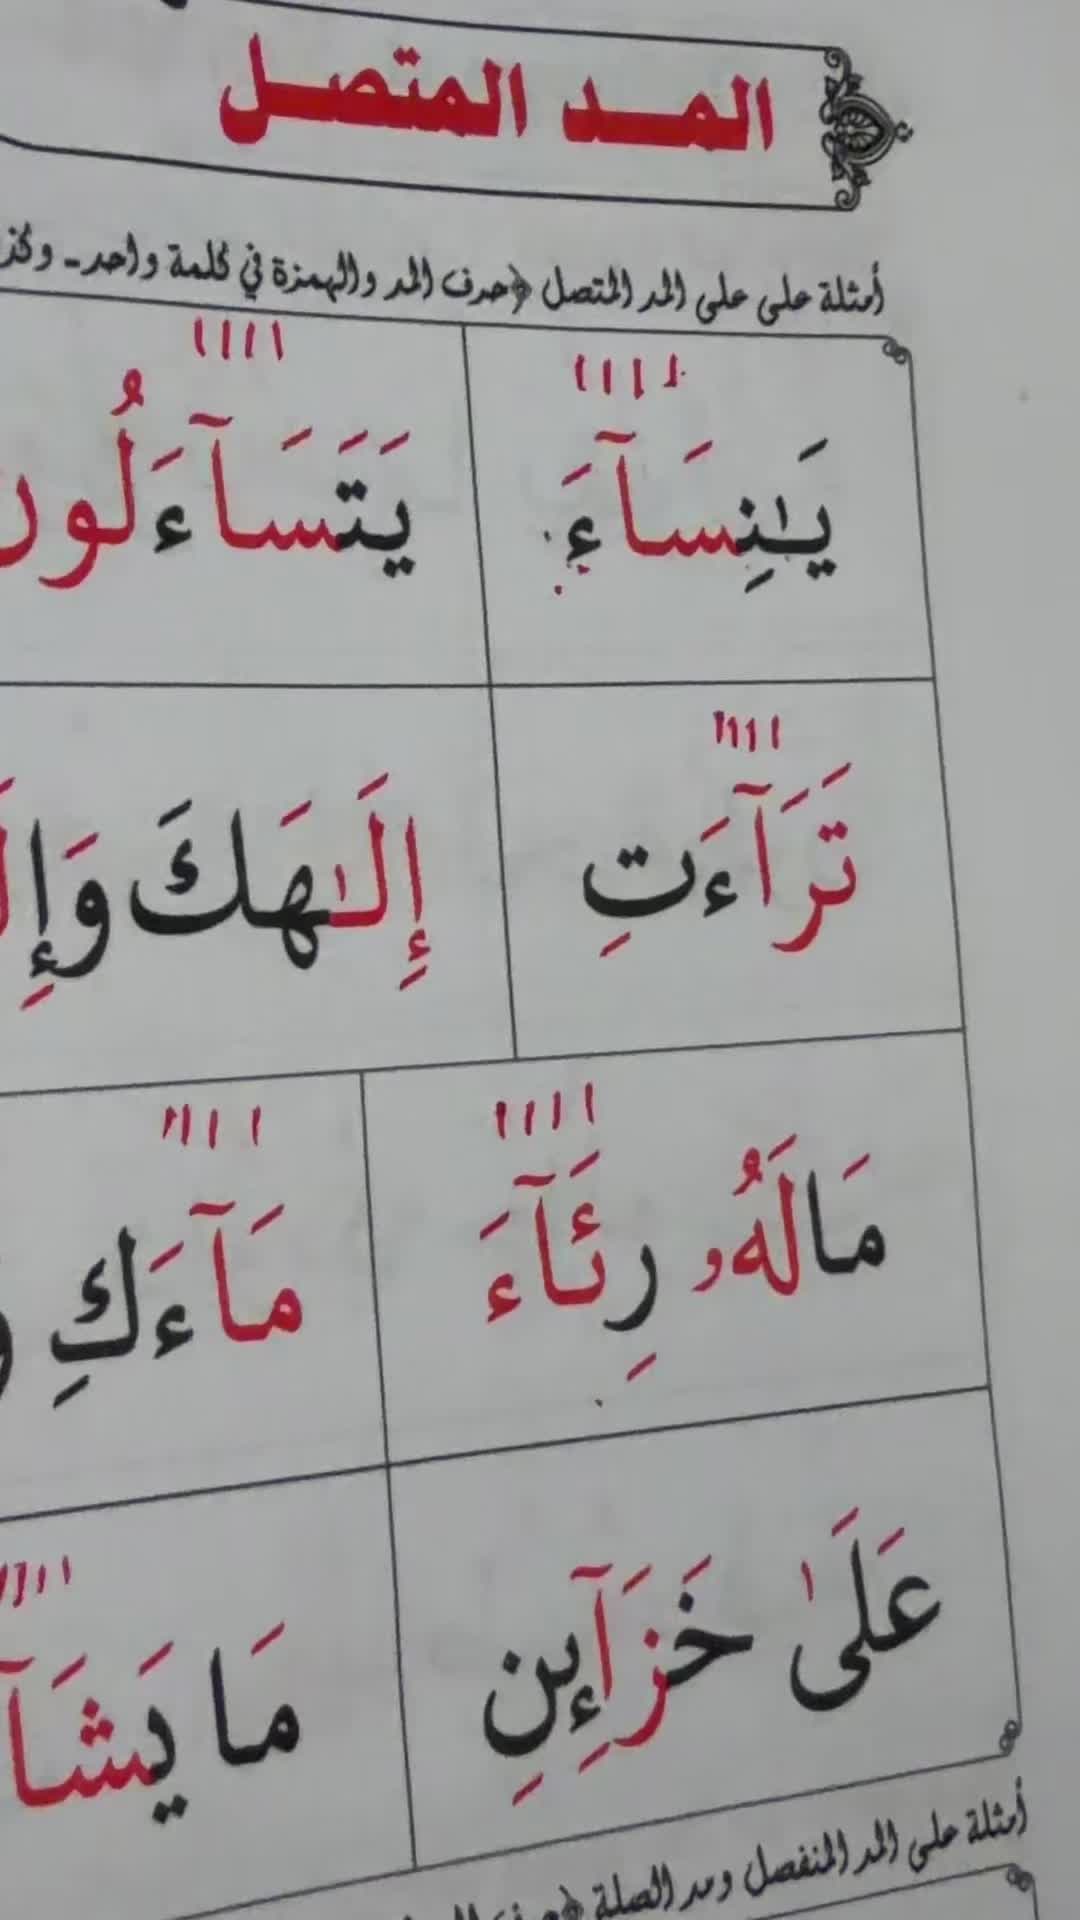 المد المتصل
أمثلة على على المد المتصل ﴿حرف المد والهمزة في كلمة واحد - وكذ
يَـٰنِسَآءَ يَتَسَآءَلُون
تَرَآءَتِ إِلَـٰهَكَ وَإِ
مَالَهُۥ رِئَآءَ مَآءَكِ
عَلَىٰ خَزَآءِنِ مَا يَشَآ
أمثلة على المد المنفصل ومد الصلة ﴿حرف